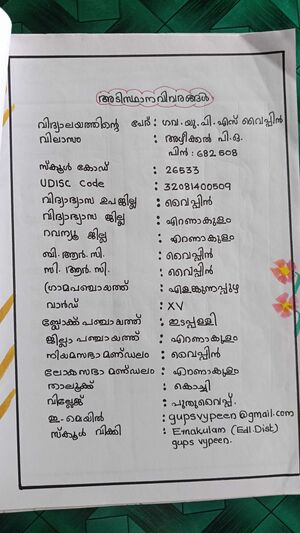 അടിസ്ഥാനവിവരങ്ങൾ
വിദ്യാലയത്തിന്റെ പേര് : ഗവ. യു. പി. എസ് വൈപ്പിൻ
വിലാസം : അഴീക്കൽ പി.ഒ.
പിൻ : 682508
സ്കൂൾ കോഡ് : 26533
UDISC Code : 32081400509
വിദ്യാഭ്യാസ ഉപജില്ല : വൈപ്പിൻ
വിദ്യാഭ്യാസ ജില്ല : എറണാകുളം
റവന്യൂ ജില്ല : എറണാകുളം
ബി. ആർ. സി. : വൈപ്പിൻ
സി. ആർ. സി. : വൈപ്പിൻ
ഗ്രാമപഞ്ചായത്ത് : എളങ്കുന്നപ്പുഴ
വാർഡ് : XV
ബ്ലോക്ക് പഞ്ചായത്ത് : ഇടപ്പള്ളി
ജില്ലാ പഞ്ചായത്ത് : എറണാകുളം
നിയമസഭാ മണ്ഡലം : വൈപ്പിൻ
ലോകസഭാ മണ്ഡലം : എറണാകുളം
താലൂക്ക് : കൊച്ചി
വില്ലേജ് : പുതുവൈപ്പ്.
ഇ-മെയിൽ : gupsvypeen@gmail.com
സ്കൂൾ വിക്കി : Ernakulam (Edl.Dist)
gups vypeen.